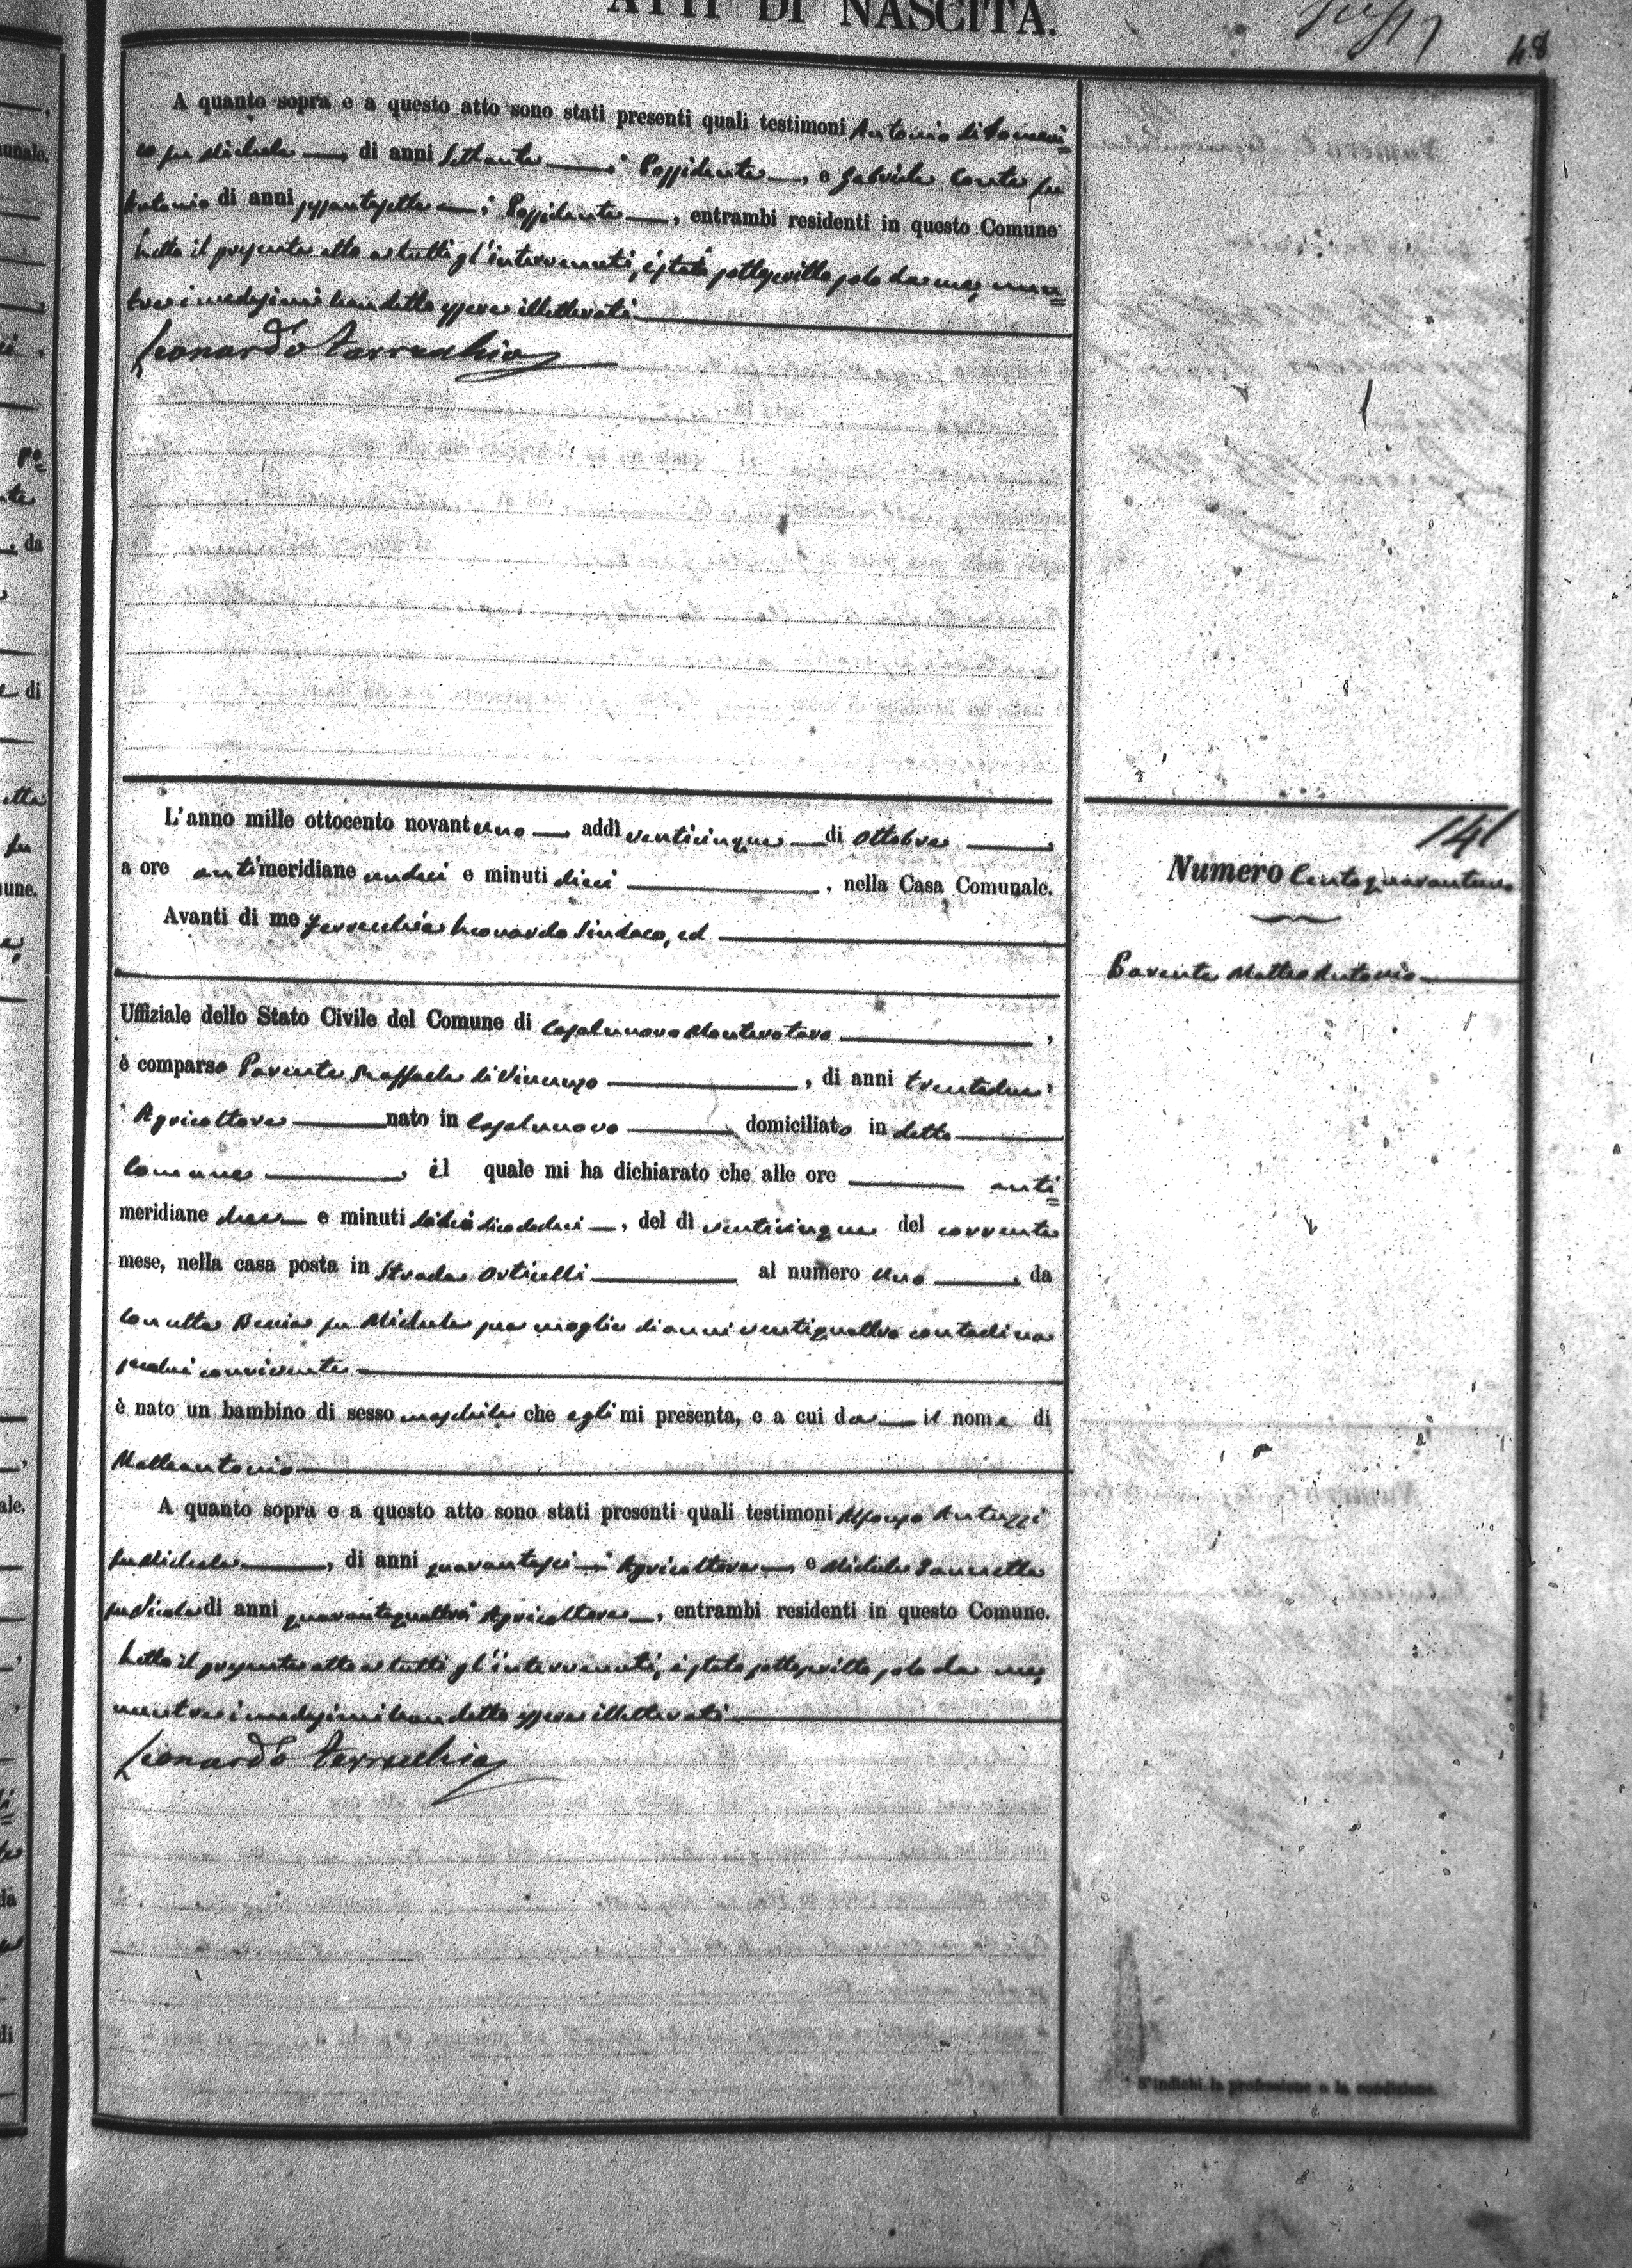 ATTI DI NASCITA.
48
A quanto sopra e a questo atto sono stati presenti quali testimoni Antonio di Domeni=
co fu Michele, di anni settanta; Possidente, e Gabriele Conte fu
Antonio di anni sessantasette; Possidente, entrambi residenti in questo Comune
Letto il presente atto a tutti gl'intervenuti, è stato sottoscritto solo da me, men=
tre i medesimi han detto essere illetterati
Leonardo Terrecchia
L'anno mille ottocento novantuno, addì venticinque di Ottobre
a ore antimeridiane undici e minuti dieci, nella Casa Comunale.
Avanti di me Terrecchia Leonardo Sindaco, ed
Uffiziale dello Stato Civile del Comune di Casalnuovo Monterotaro,
è comparso Parente Raffaele di Vincenzo, di anni trentadue;
Agricoltore nato in Casalnuovo domiciliato in detto
Comune, il quale mi ha dichiarato che alle ore anti=
meridiane e minuti, del dì venticinque del corrente
mese, nella casa posta in Strada Orticelli al numero uno, da
Concetta fu Michele sua moglie di anni ventiquattro contadina
seco lui convivente
è nato un bambino di sesso maschile che egli mi presenta, e a cui da il nome di
Matteantonio
A quanto sopra e a questo atto sono stati presenti quali testimoni Alfonso Antuzzi
fu Michele, di anni quarantasei; Agricoltore, e Michele Iannetta
fu Nicola di anni quarantaquattro; Agricoltore, entrambi residenti in questo Comune.
Letto il presente atto a tutti gl'intervenuti, è stato sottoscritto solo da me,
mentre i medesimi han detto essere illetterati
Leonardo Terrecchia
141
Numero Centoquarantuno
Parente Matteo Antonio
S'indichi la professione o la condizione.